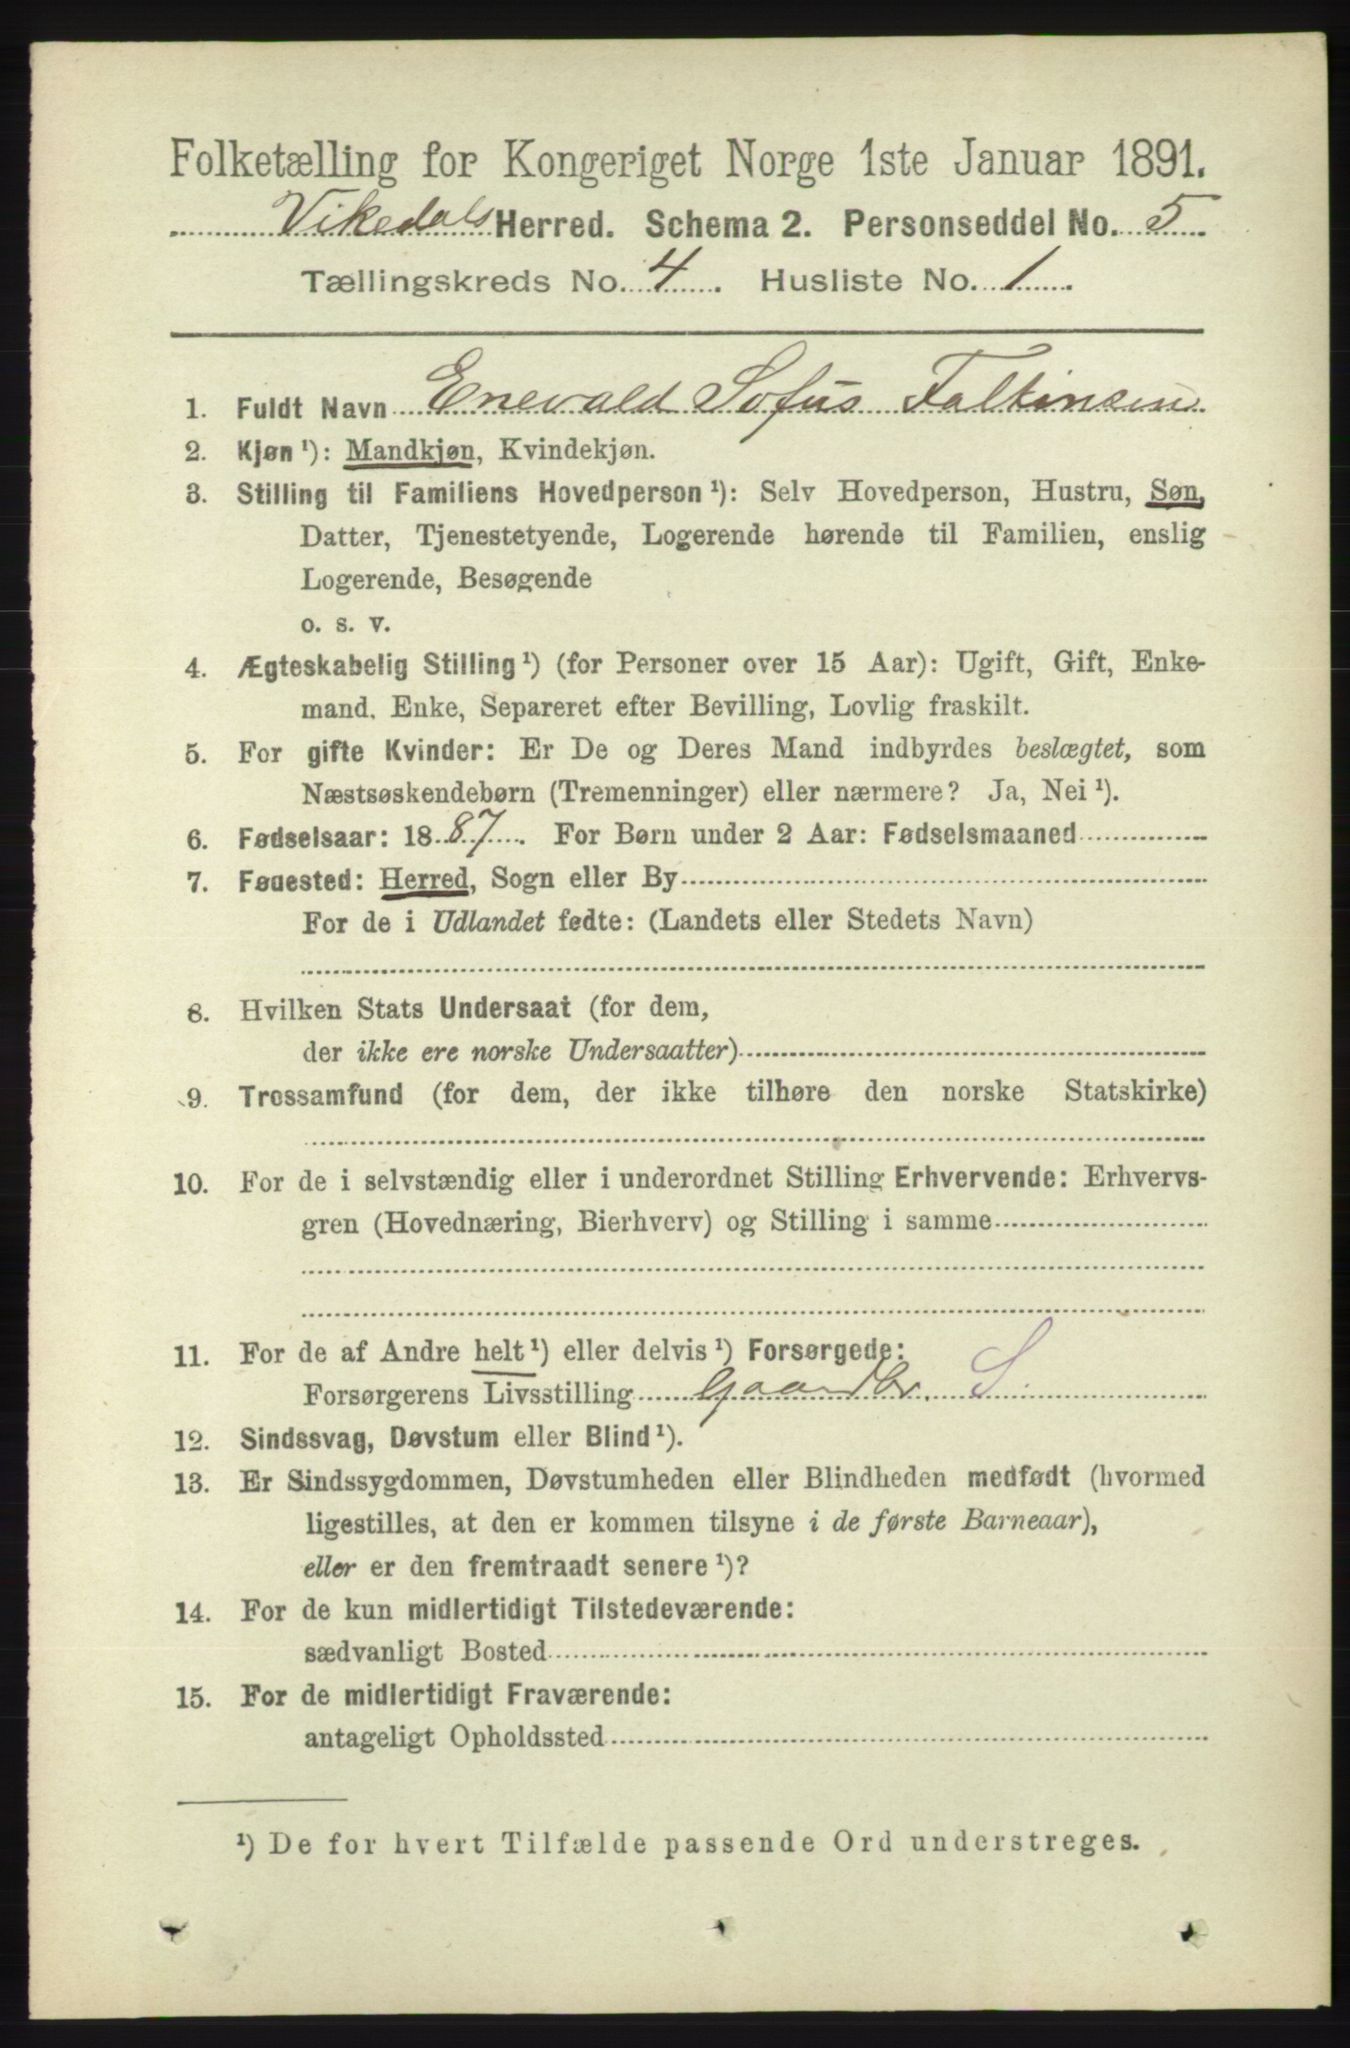 Folketælling for Kongeriget Norge 1ste Januar 1891.
Vikedals Herred. Schema 2. Personseddel No. 5
Tællingskreds No. 4. Husliste No. 1
1. Fuldt Navn Enevald Sofus Falkinsen
2. Kjøn ¹): Mandkjøn, Kvindekjøn.
3. Stilling til Familiens Hovedperson ¹): Selv Hovedperson, Hustru, Søn,
Datter, Tjenestetyende, Logerende hørende til Familien, enslig
Logerende, Besøgende
o. s. v.
4. Ægteskabelig Stilling ¹) (for Personer over 15 Aar): Ugift, Gift, Enke-
mand, Enke, Separeret efter Bevilling, Lovlig fraskilt.
5. For gifte Kvinder: Er De og Deres Mand indbyrdes beslægtet, som
Næstsøskendebørn (Tremenninger) eller nærmere? Ja, Nei ¹).
6. Fødselsaar: 1887. For Børn under 2 Aar: Fødselsmaaned
7. Fødested: Herred, Sogn eller By
For de i Udlandet fødte: (Landets eller Stedets Navn)
8. Hvilken Stats Undersaat (for dem,
der ikke ere norske Undersaatter)
9. Trossamfund (for dem, der ikke tilhøre den norske Statskirke)
10. For de i selvstændig eller i underordnet Stilling Erhvervende: Erhvervs-
gren (Hovednæring, Bierhverv) og Stilling i samme
11. For de af Andre helt ¹) eller delvis ¹) Forsørgede:
Forsørgerens Livsstilling Gaardbr. S.
12. Sindssvag, Døvstum eller Blind ¹).
13. Er Sindssygdommen, Døvstumheden eller Blindheden medfødt (hvormed
ligestilles, at den er kommen tilsyne i de første Barneaar),
eller er den fremtraadt senere ¹)?
14. For de kun midlertidigt Tilstedeværende:
sædvanligt Bosted
15. For de midlertidigt Fraværende:
antageligt Opholdssted
¹) De for hvert Tilfælde passende Ord understreges.